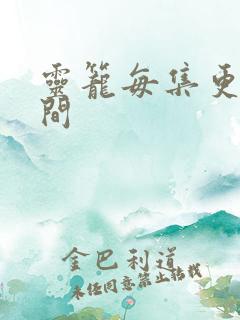 靈籠每集更
間
金巴利道
未经同意禁止转载